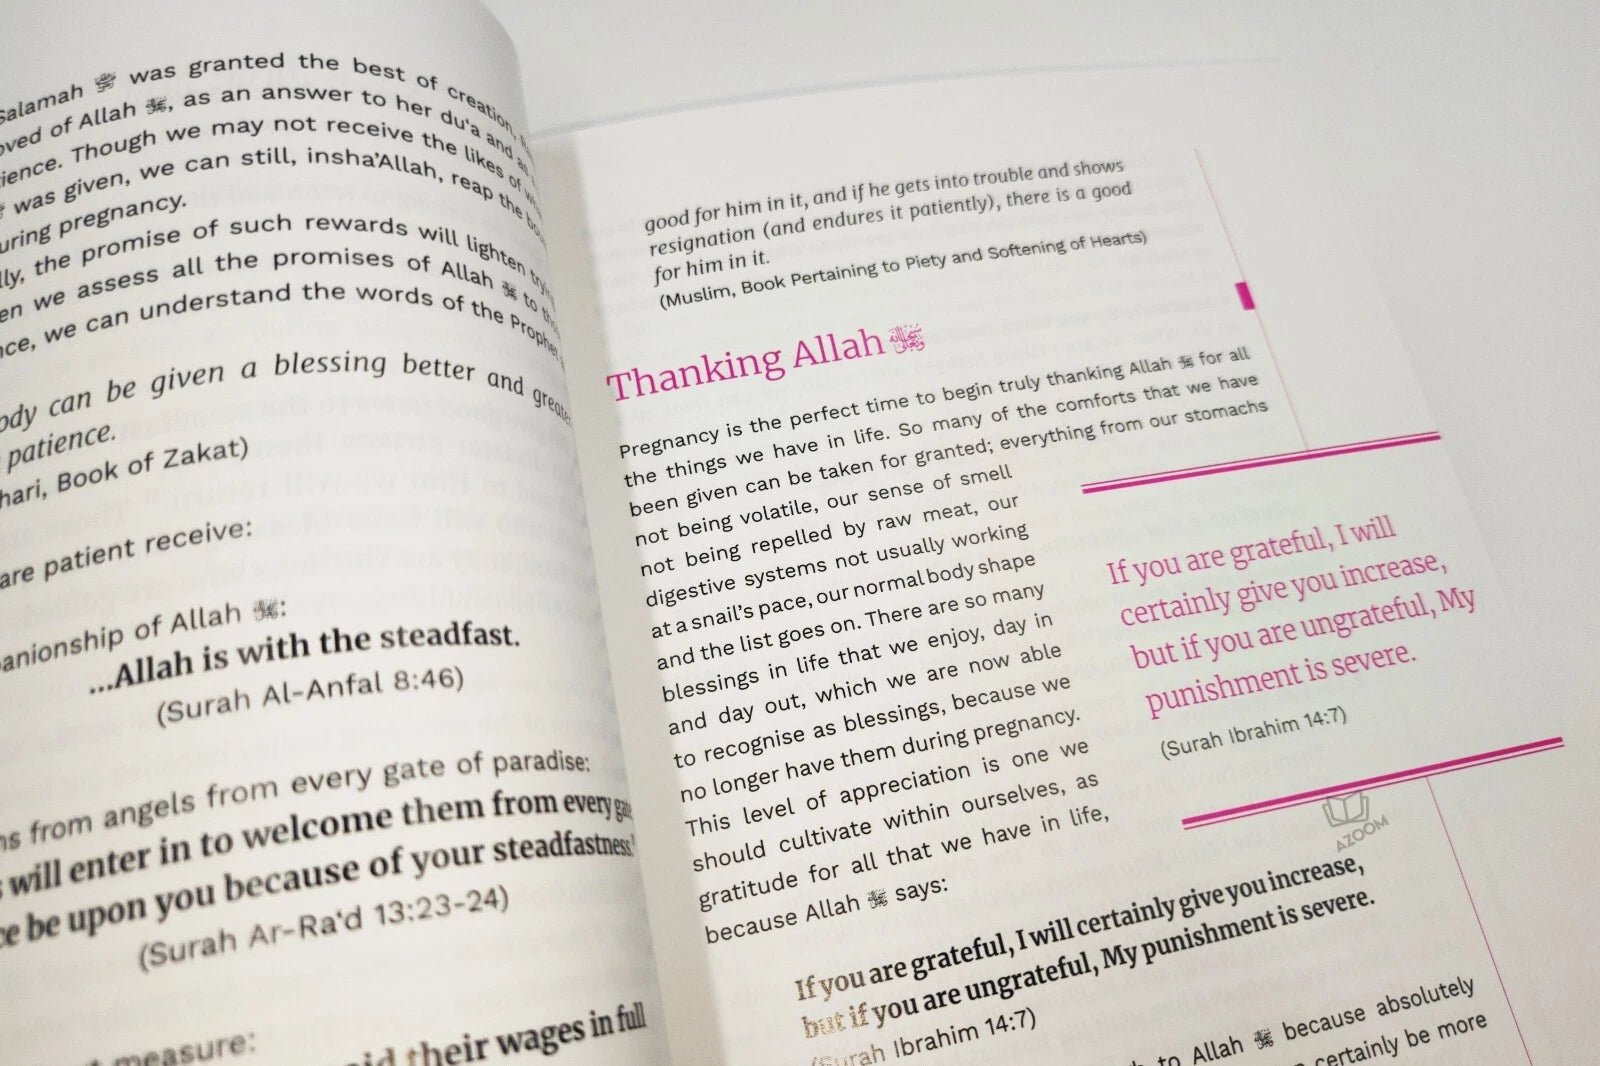 Salamah ﷺ was granted the best of creation,
of Allah ﷺ, as an answer to her du'a and as
Though we may not receive the likes of
was given, we can still, insha'Allah, reap the
pregnancy.
the promise of such rewards will lighten
we assess all the promises of Allah ﷻ to
we can understand the words of the Prophet
can be given a blessing better and
patience.
Book of Zakat)
are patient receive:
of Allah ﷻ:
...Allah is with the steadfast.
(Surah Al-Anfal 8:46)
from angels from every gate of paradise:
will enter in to welcome them from every
be upon you because of your steadfastness'
(Surah Ar-Ra'd 13:23-24)
measure:
their wages in full
good for him in it, and if he gets into trouble and shows
resignation (and endures it patiently), there is a good
for him in it.
(Muslim, Book Pertaining to Piety and Softening of Hearts)
Thanking Allah سبحانه وتعالى
Pregnancy is the perfect time to begin truly thanking Allah ﷻ for all
the things we have in life. So many of the comforts that we have
been given can be taken for granted; everything from our stomachs
not being volatile, our sense of smell
not being repelled by raw meat, our
digestive systems not usually working
at a snail's pace, our normal body shape
and the list goes on. There are so many
blessings in life that we enjoy, day in
and day out, which we are now able
to recognise as blessings, because we
no longer have them during pregnancy.
This level of appreciation is one we
should cultivate within ourselves, as
gratitude for all that we have in life,
because Allah ﷻ says:
If you are grateful, I will
certainly give you increase,
but if you are ungrateful, My
punishment is severe.
(Surah Ibrahim 14:7)
AZOOM
If you are grateful, I will certainly give you increase,
but if you are ungrateful, My punishment is severe.
(Surah Ibrahim 14:7)
to Allah ﷻ because absolutely
certainly be more